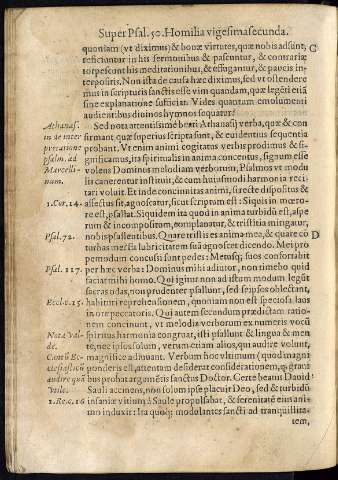 Super Psal. 50. Homilia vigesimasecunda.
quoniam (vt diximus) & bonæ virtutes, quæ nobis adsunt, C
reficiuntur in his sermonibus & pascuntur, & contrariæ
torpescunt his meditationibus, & effugantur, & paucis in-
terpositis. Non ista de causa hæc diximus, sed vt ostendere
mus in scripturis sanctis esse vim quandam, quæ legéti etiā
sine explanatione sufficiat. Vides quantum emolumenti
audientibus diuinos hymnos sequatur?
Athanas.
in de inter
pretatione
psalm. ad
Marcelli-
num.
Sed nota attentissimè beati Athanasij verba, quæ & con
firmant quæ superius scripta sunt, & euidentius sequentia
probant. Vt enim animi cogitatus verbis prodimus & si-
gnificamus, ita spiritualis in anima concentus, signum esse
volens Dominus melodiam verborum, Psalmos vt modu
lis canerentur instituit, & cum huiusmodi harmonia reci-
tari voluit. Et inde concinnitas animi, si recte dispositus &
1. Cor. 14. affectus sit, agnoscatur, sicut scriptum est: Siquis in mœro-
re est, psallat. Siquidem ita quod in anima turbidū est, aspe
rum & incompositum, complanatur, & tristitia mitigatur,
Psal. 72. nobis psallentibus. Quare tristis es anima mea, & quare cō D
turbas me? sua lubricitatem suā agnoscet dicendo. Mei pro
pemodum concussi sunt pedes: Metusq; suos confortabit
Psal. 117. per hæc verba: Dominus mihi adiutor, non timebo quid
faciat mihi homo. Qui igitur non ad istum modum legūt
sacras odas, non prudenter psallunt, sed seipsos oblectant,
Eccl. c. 15. habituri reprehensionem, quoniam non est speciosa laus
in ore peccatoris. Qui autem secundum prædictam ratio-
nem concinunt, vt melodia verborum ex numeris vocū
Nota Valde.
spiritus harmonia congruat, isti psallunt & lingua & men
te, nec ipsis solum, verum etiam alios, qui audire volunt,
magnificè adiuuant. Verbum hoc vltimum (quod magni
ponderis est, attentam desiderat considerationem,
bus probat argumētis sanctus Doctor. Certe beatus Dauid
Sauli accinens, non solum ipse placuit Deo, sed & turbidū
1. Re. c. 16 insaniæ vitium à Saule propulsabat, & serenitatē eius ani
mo induxit: Ita quoq; modulantes sancti ad tranquillita-
tem,